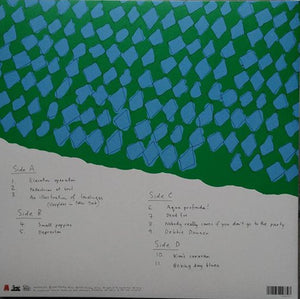 Side A
1. Elevator operator
2. Pedestrian at best
3. An illustration of loneliness
(sleepless in New York)
Side B
4. Small poppies
5. Depreston
Side C
6 Aqua profunda!
7 Dead Fox
8 Nobody really cares if you don't go to the party
9 Debbie Downer
Side D
10 Kim's caravan
11 Boxing day blues